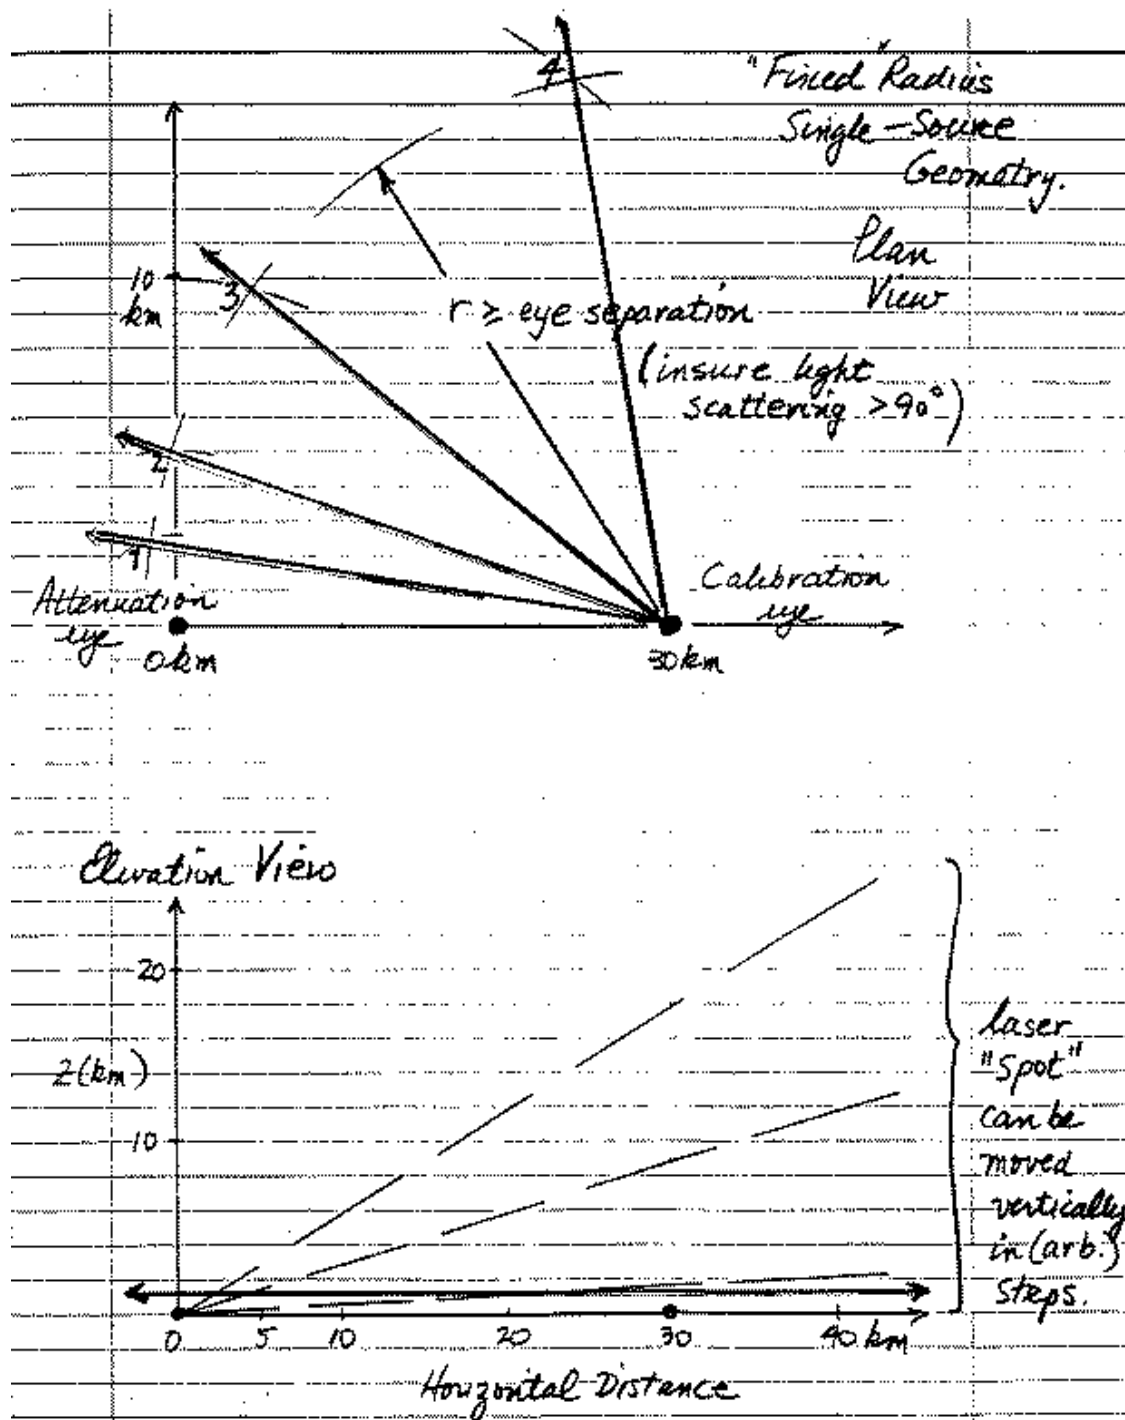 "Fixed" Radius
Single-Source
Geometry.
Plan
View
4
10
km
3
r ≥ eye separation
(insure light
scattering >90°)
2
1
Attenuation
eye
0 km
Calibration
eye
30 km
Elevation View
20
Z(km)
10
laser
"spot"
can be
moved
vertically
in (arb.)
steps.
0 5 10 20 30 40 km
Horizontal Distance